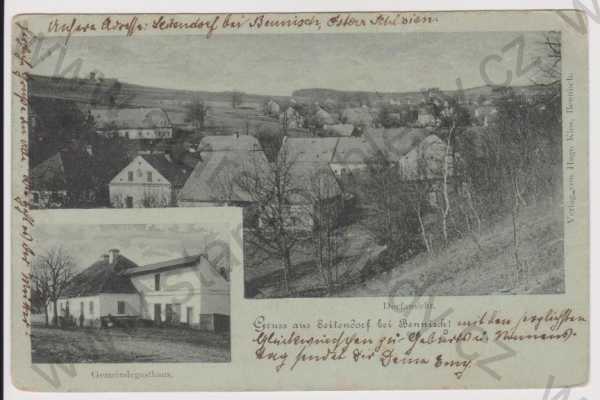 Unsere Adresse: Seitendorf bei Bennisch, Österr Schlesien.
Verlag von Hugo Klos, Bennisch.
Dorfansicht.
Gruss aus Seitendorf bei Bennisch!
mit den herzlichsten
Glückwünschen zu Geburts u. Namens
tag sendet dir Deine Emy
Gemeindegasthaus.